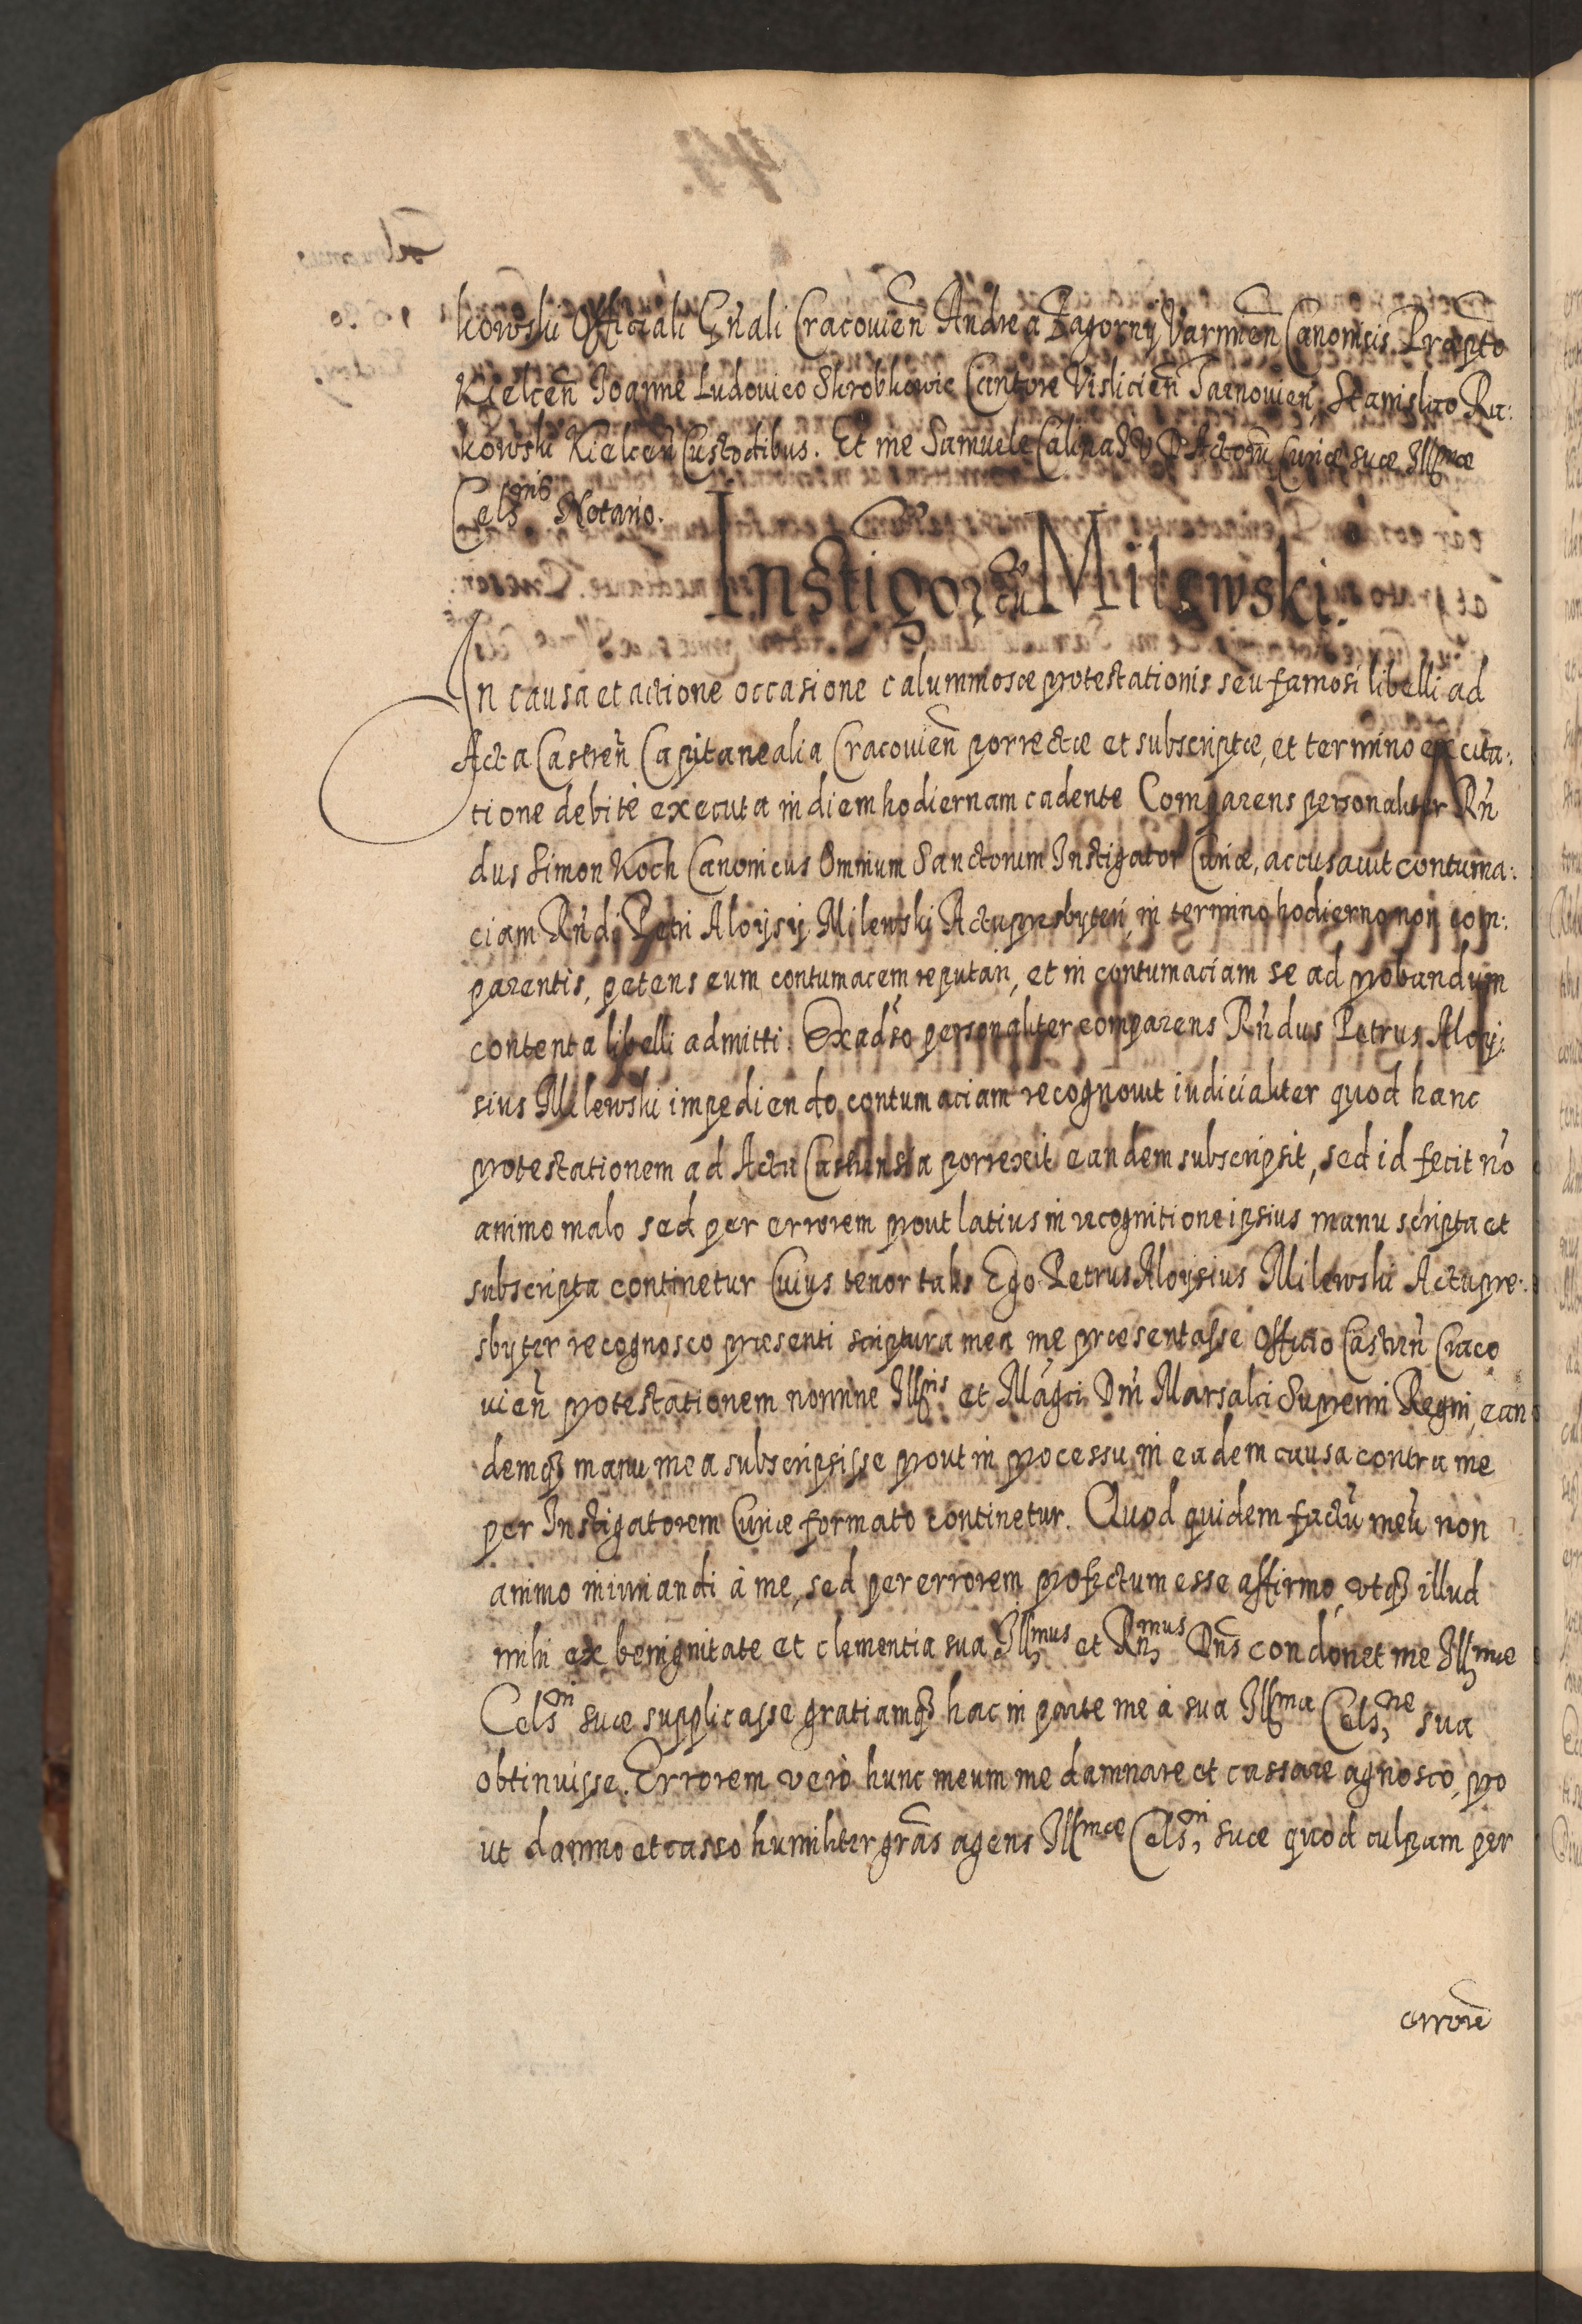 kowski Officiali Gñali Cracovien̄ Andrea Zagorny Varmien̄ Canonicis. Præpto
Kielcen̄ Joanne Ludovico Skrobkowic Cantore Vislicien̄ Tarnovien̄, Stanislao Ra:
kowski Kielcen̄ Custodibus. Et me Samuele Calina J V D Actorū Curiæ suæ Illmæ
Celsnis Notario.
Instigor cū Milewski.
In causa et actione occasione calumniosæ protestationis seu famosi libelli ad
Acta Castren̄ Capitanealia Cracovien̄ porrectæ et subscriptæ, et termino ex cita:
tione debitè executa in diem hodiernam cadente Comparens personaliter Rn̄
dus Simon Koch Canonicus Omnium Sanctorum Instigator Curiæ, accusavit contuma:
ciam Rn̄di Petri Aloysij Milewski Actupresbyteri, in termino hodierno non com:
parentis, petens eum contumacem reputari, et in contumaciam se ad probandum
contenta libelli admitti. Exadso personaliter comparens Rn̄dus Petrus Aloy:
sius Milewski impediendo contumaciam recognovit iudicialiter quod hanc
protestationem ad Acta Castrensia porrexit eandem subscripsit, sed id fecit nō
animo malo sed per errorem prout latius in recognitione ipsius manu scripta et
subscripta continetur Cuius tenor talis Ego Petrus Aloysius Milewski Actupre:
sbyter recognosco præsenti scriptura mea me præsentasse Officio Castren̄ Craco
vien̄ protestationem nomine Illris et Magci Dni Marsalci Supremi Regni, ean
demq3 manu mea subscripsisse prout in processu in eadem causa contra me
per Instigatorem Curiæ formato continetur. Quod quidem factū meū non
animo iniuriandi à me, sed per errorem profectum esse affirmo, vtq3 illud
mihi ex benignitate et clementia sua Illmus et Rn̄mus Dn̄s condonet me Illmæ
Celsni suæ supplicasse gratiamq3 hac in parte me à sua Illma Celsne sua
obtinuisse. Errorem verò hunc meum me damnare et cassare agnosco, pro
ut damno et casso humiliter grās agens Illmæ Celsni suæ quod culpam per
errorē